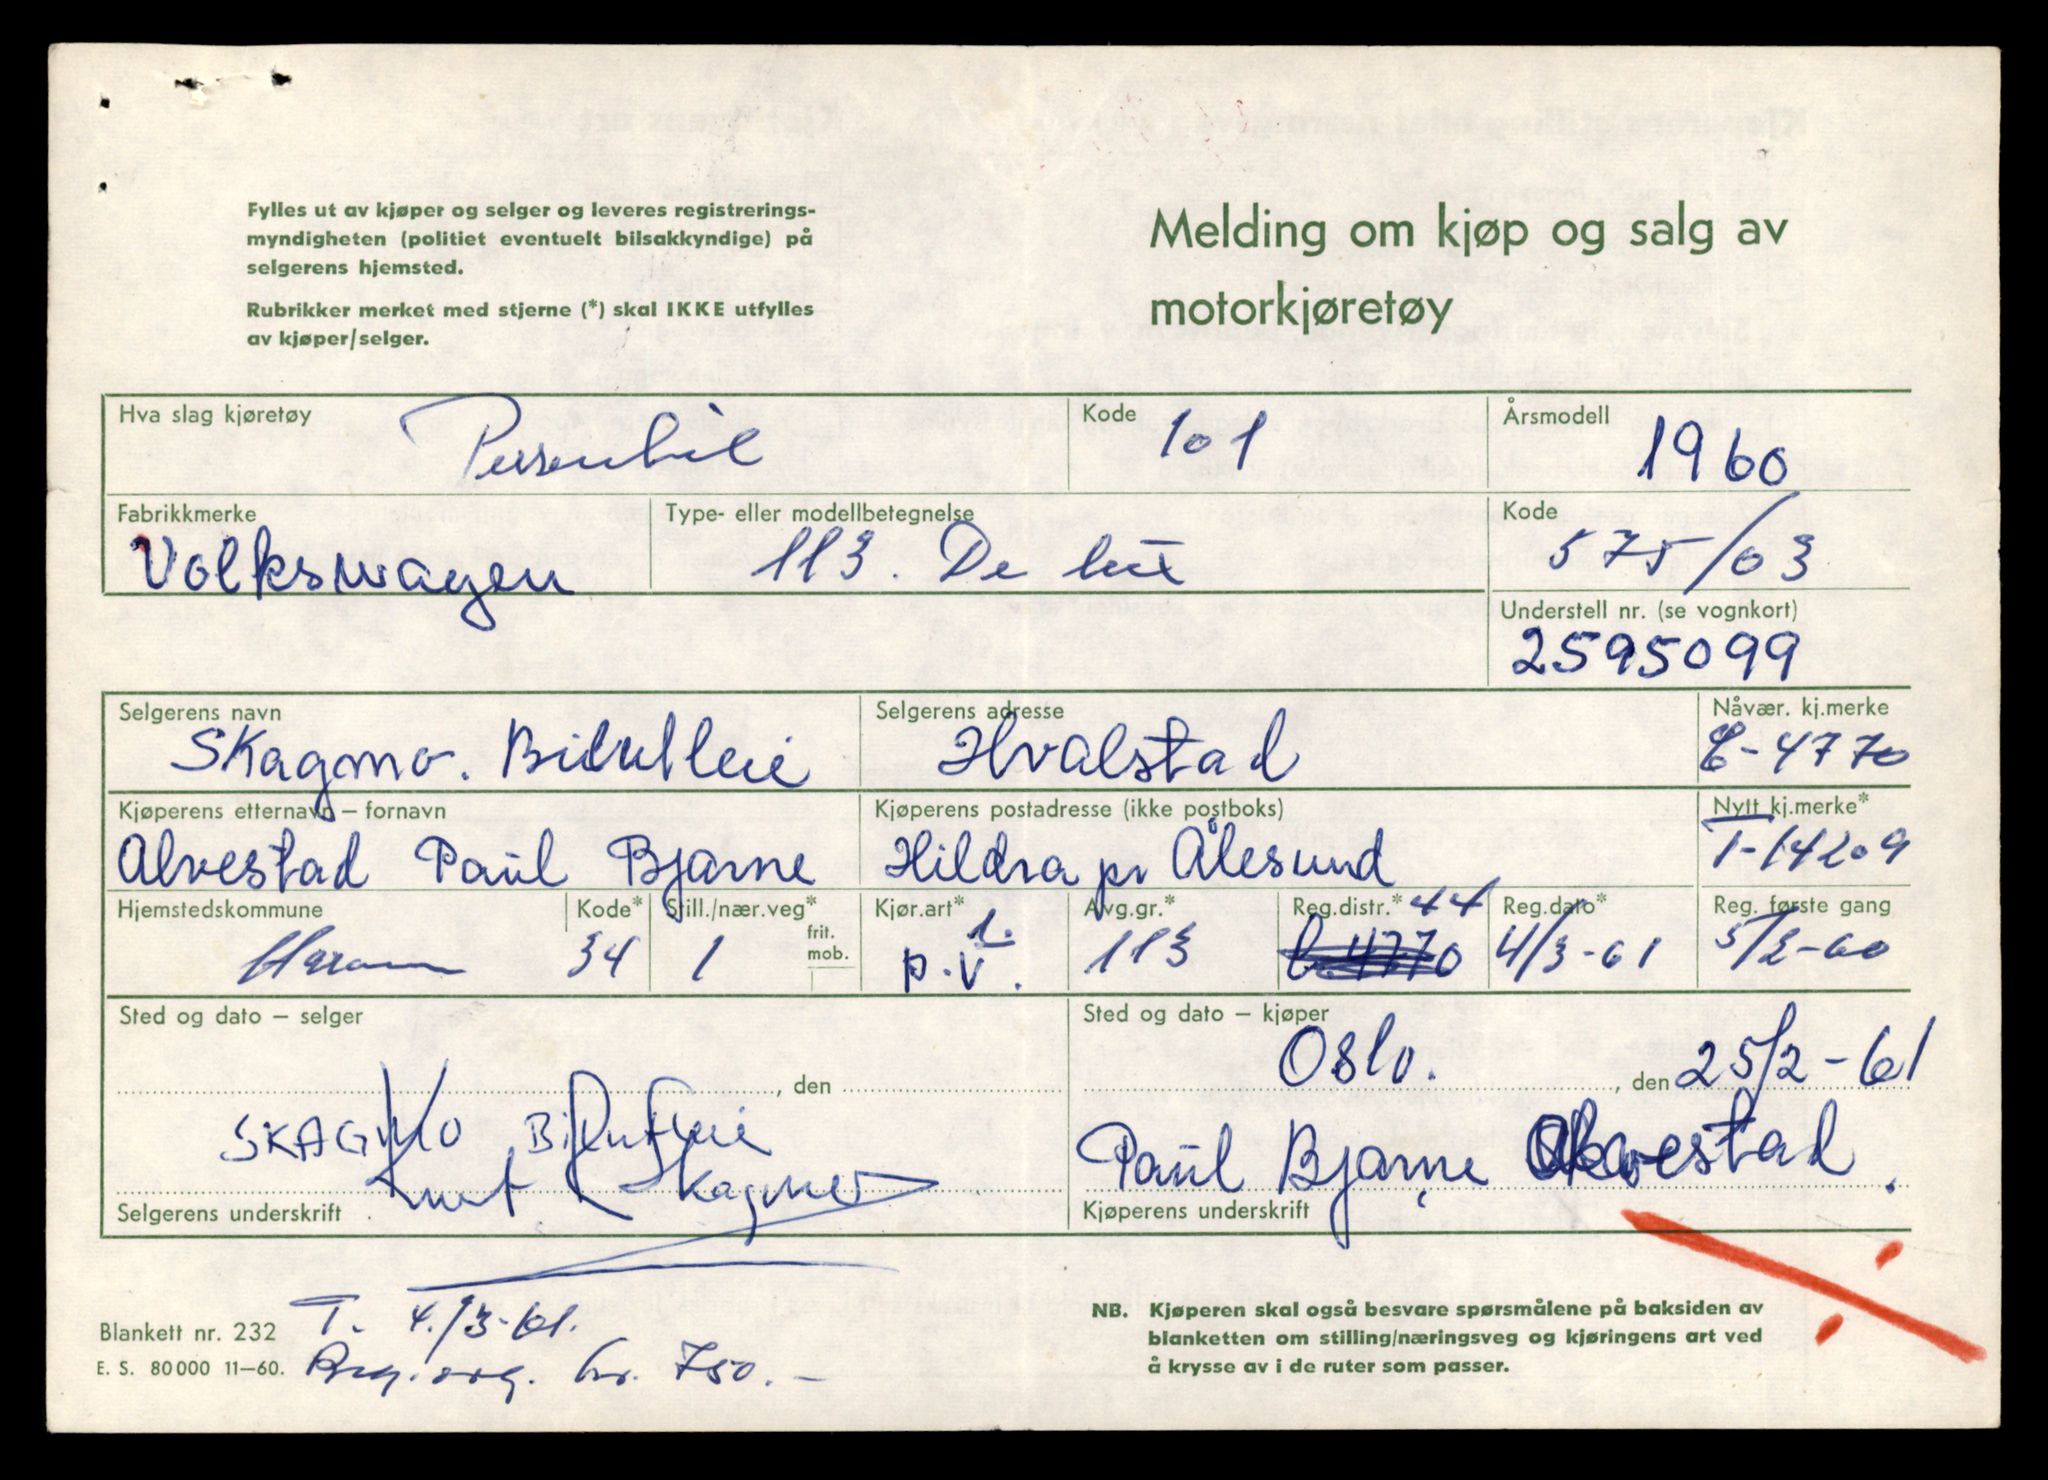 Fylles ut av kjøper og selger og leveres registrerings-
myndigheten (politiet eventuelt bilsakkyndige) på
selgerens hjemsted.
Rubrikker merket med stjerne (*) skal IKKE utfylles
av kjøper/selger.
Melding om kjøp og salg av
motorkjøretøy
Hva slag kjøretøy Personbil Kode 101 Årsmodell 1960
Fabrikkmerke Volkswagen Type- eller modellbetegnelse 113. De lux Kode 575/03
Understell nr. (se vognkort)
2595099
Selgerens navn Selgerens adresse Nåvær. kj.merke
Skagmo. Bilutleie Hvalstad C-4770
Kjøperens etternavn – fornavn Kjøperens postadresse (ikke postboks) Nytt kj.merke*
Alvestad Paul Bjarne Hildra pr Ålesund T-14209
Hjemstedskommune Kode* Still./nær.veg* Kjør.art* Avg.gr.* Reg.distr.* 44 Reg.dato* Reg. første gang
Haram 34 1 frit. mob. 1. p.v. 113 4770 4/3-61 5/2-60
Sted og dato – selger Sted og dato – kjøper
, den Oslo. , den 25/2-61
SKAGMO Bilutleie Paul Bjarne Alvestad.
Knut Skagmo
Selgerens underskrift Kjøperens underskrift
Blankett nr. 232 T. 4./3-61.
E. S. 80000 11–60. Reg.avg. kr. 750.-
NB. Kjøperen skal også besvare spørsmålene på baksiden av
blanketten om stilling/næringsveg og kjøringens art ved
å krysse av i de ruter som passer.